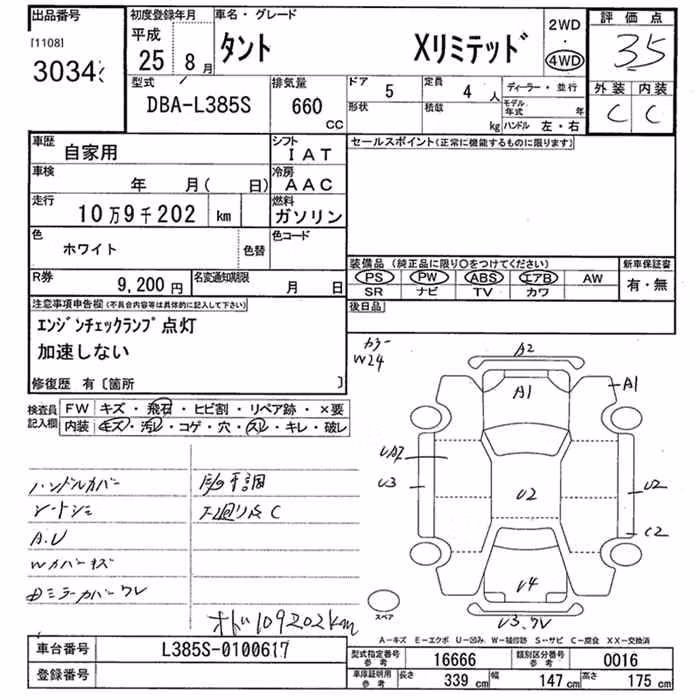 出品番号 初度登録年月 車名・グレード 2WD ・ 4WD 評価点
[1108] 平成 25 8月 タント Xリミテッド 35
3034
型式 排気量 ドア 定員 ディーラー・並行 外装 内装
DBA-L385S 660 CC 5 4 人 C C
形状 積載 kg モデル年式 年
ハンドル 左・右
車歴 自家用 シフト IAT セールスポイント(正常に機能するものに限ります)
車検 年 月( 日) 冷房 AAC
走行 10万9千202 km 燃料 ガソリン
色 ホワイト 色替 色コード
装備品 (純正品に限り○をつけてください) 新車保証書
PS PW ABS エアB AW 有・無
SR ナビ TV カワ
R券 9,200円 名変通知期限 月 日
後日品
注意事項申告欄(不具合内容等は具体的に記入して下さい)
エンジンチェックランプ点灯
加速しない
修復歴 有〔箇所 〕
カラー
W24
検査員記入欄 FW キズ・飛石・ヒビ割・リペア跡・×要
内装 キズ・汚レ・コゲ・穴・スレ・キレ・破レ
A2
A1
A1
UA2
U3
U2
U2
C2
U4
U3.
スペア
ハンドルカバー
A.U
下廻りサビC
オドー109202km
A-キズ E-エクボ U-凹み W-補修跡 S-サビ C-腐食 XX-交換済
車台番号 L385S-0100617
登録番号
型式指定番号 参考 16666 類別区分番号 参考 0016
車庫証明用 参考 長さ 339 cm 幅 147 cm 高さ 175 cm